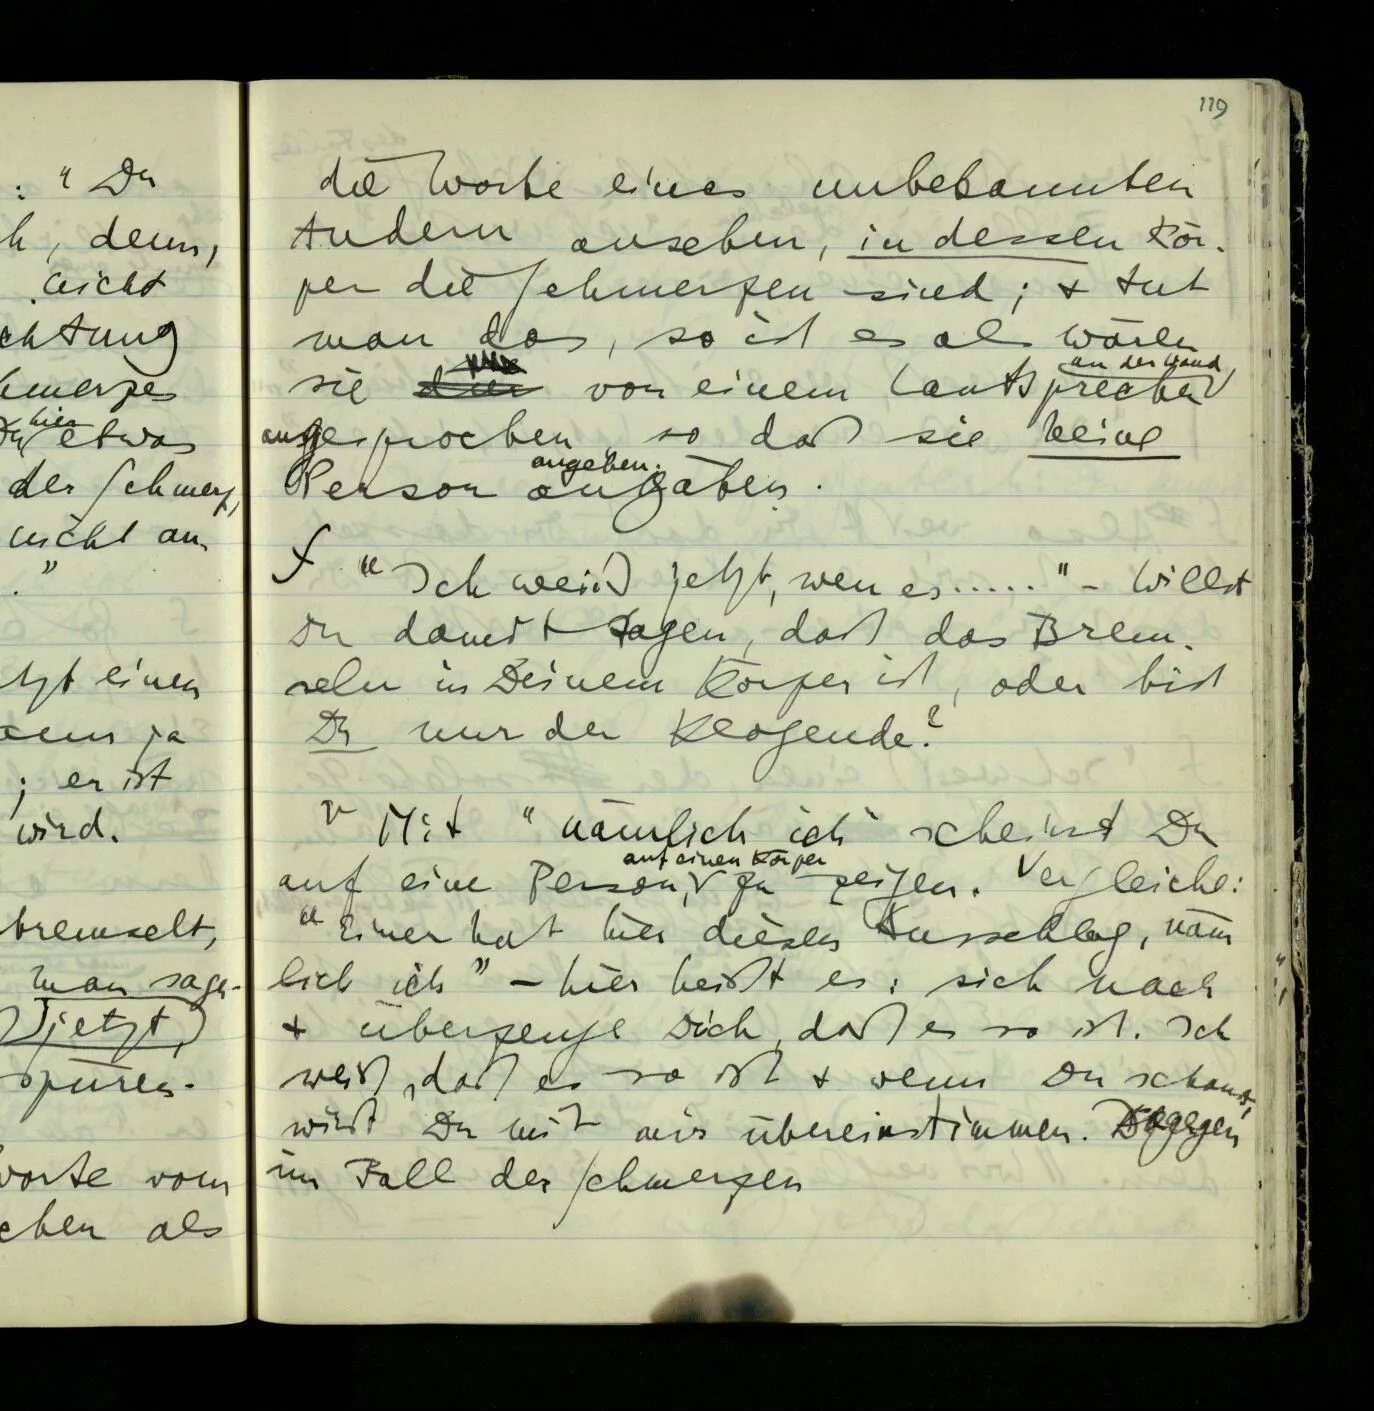 : "Du
h, denn,
leicht
chtung
hmerzes
hier
Du etwas
der Schmerz,
nicht an-
."
tzt einen
denn ja
; er ist
wird.
bremselt,
man sage-
jetzt,
spüren.
worte vom
chen als
119
die Worte eines unbekannten
Andern ansehen, in dessen Kör-
per die Schmerzen sind; + tut
man das, so ist es als wären
an der Wand,
sie von einem Lautsprecher
ausgesprochen, so daß sie keine
angeben.
Person angäben.
∫ "Ich weiß jetzt, wen es....." – Willst
Du damit sagen, daß das Brem-
seln in Deinem Körper ist, oder bist
Du nur der Klagende?
v Mit "nämlich ich" scheinst Du
auf einen Körper
auf eine Person, v zu zeigen. Vergleiche:
"Einer hat hier diesen Ausschlag, näm
lich ich" – hier heißt es: sieh nach
+ überzeuge Dich, daß es so ist. Ich
weiß, daß es so ist + wenn Du schaust,
wirst Du mit mir übereinstimmen. Dagegen
im Fall der Schmerzen